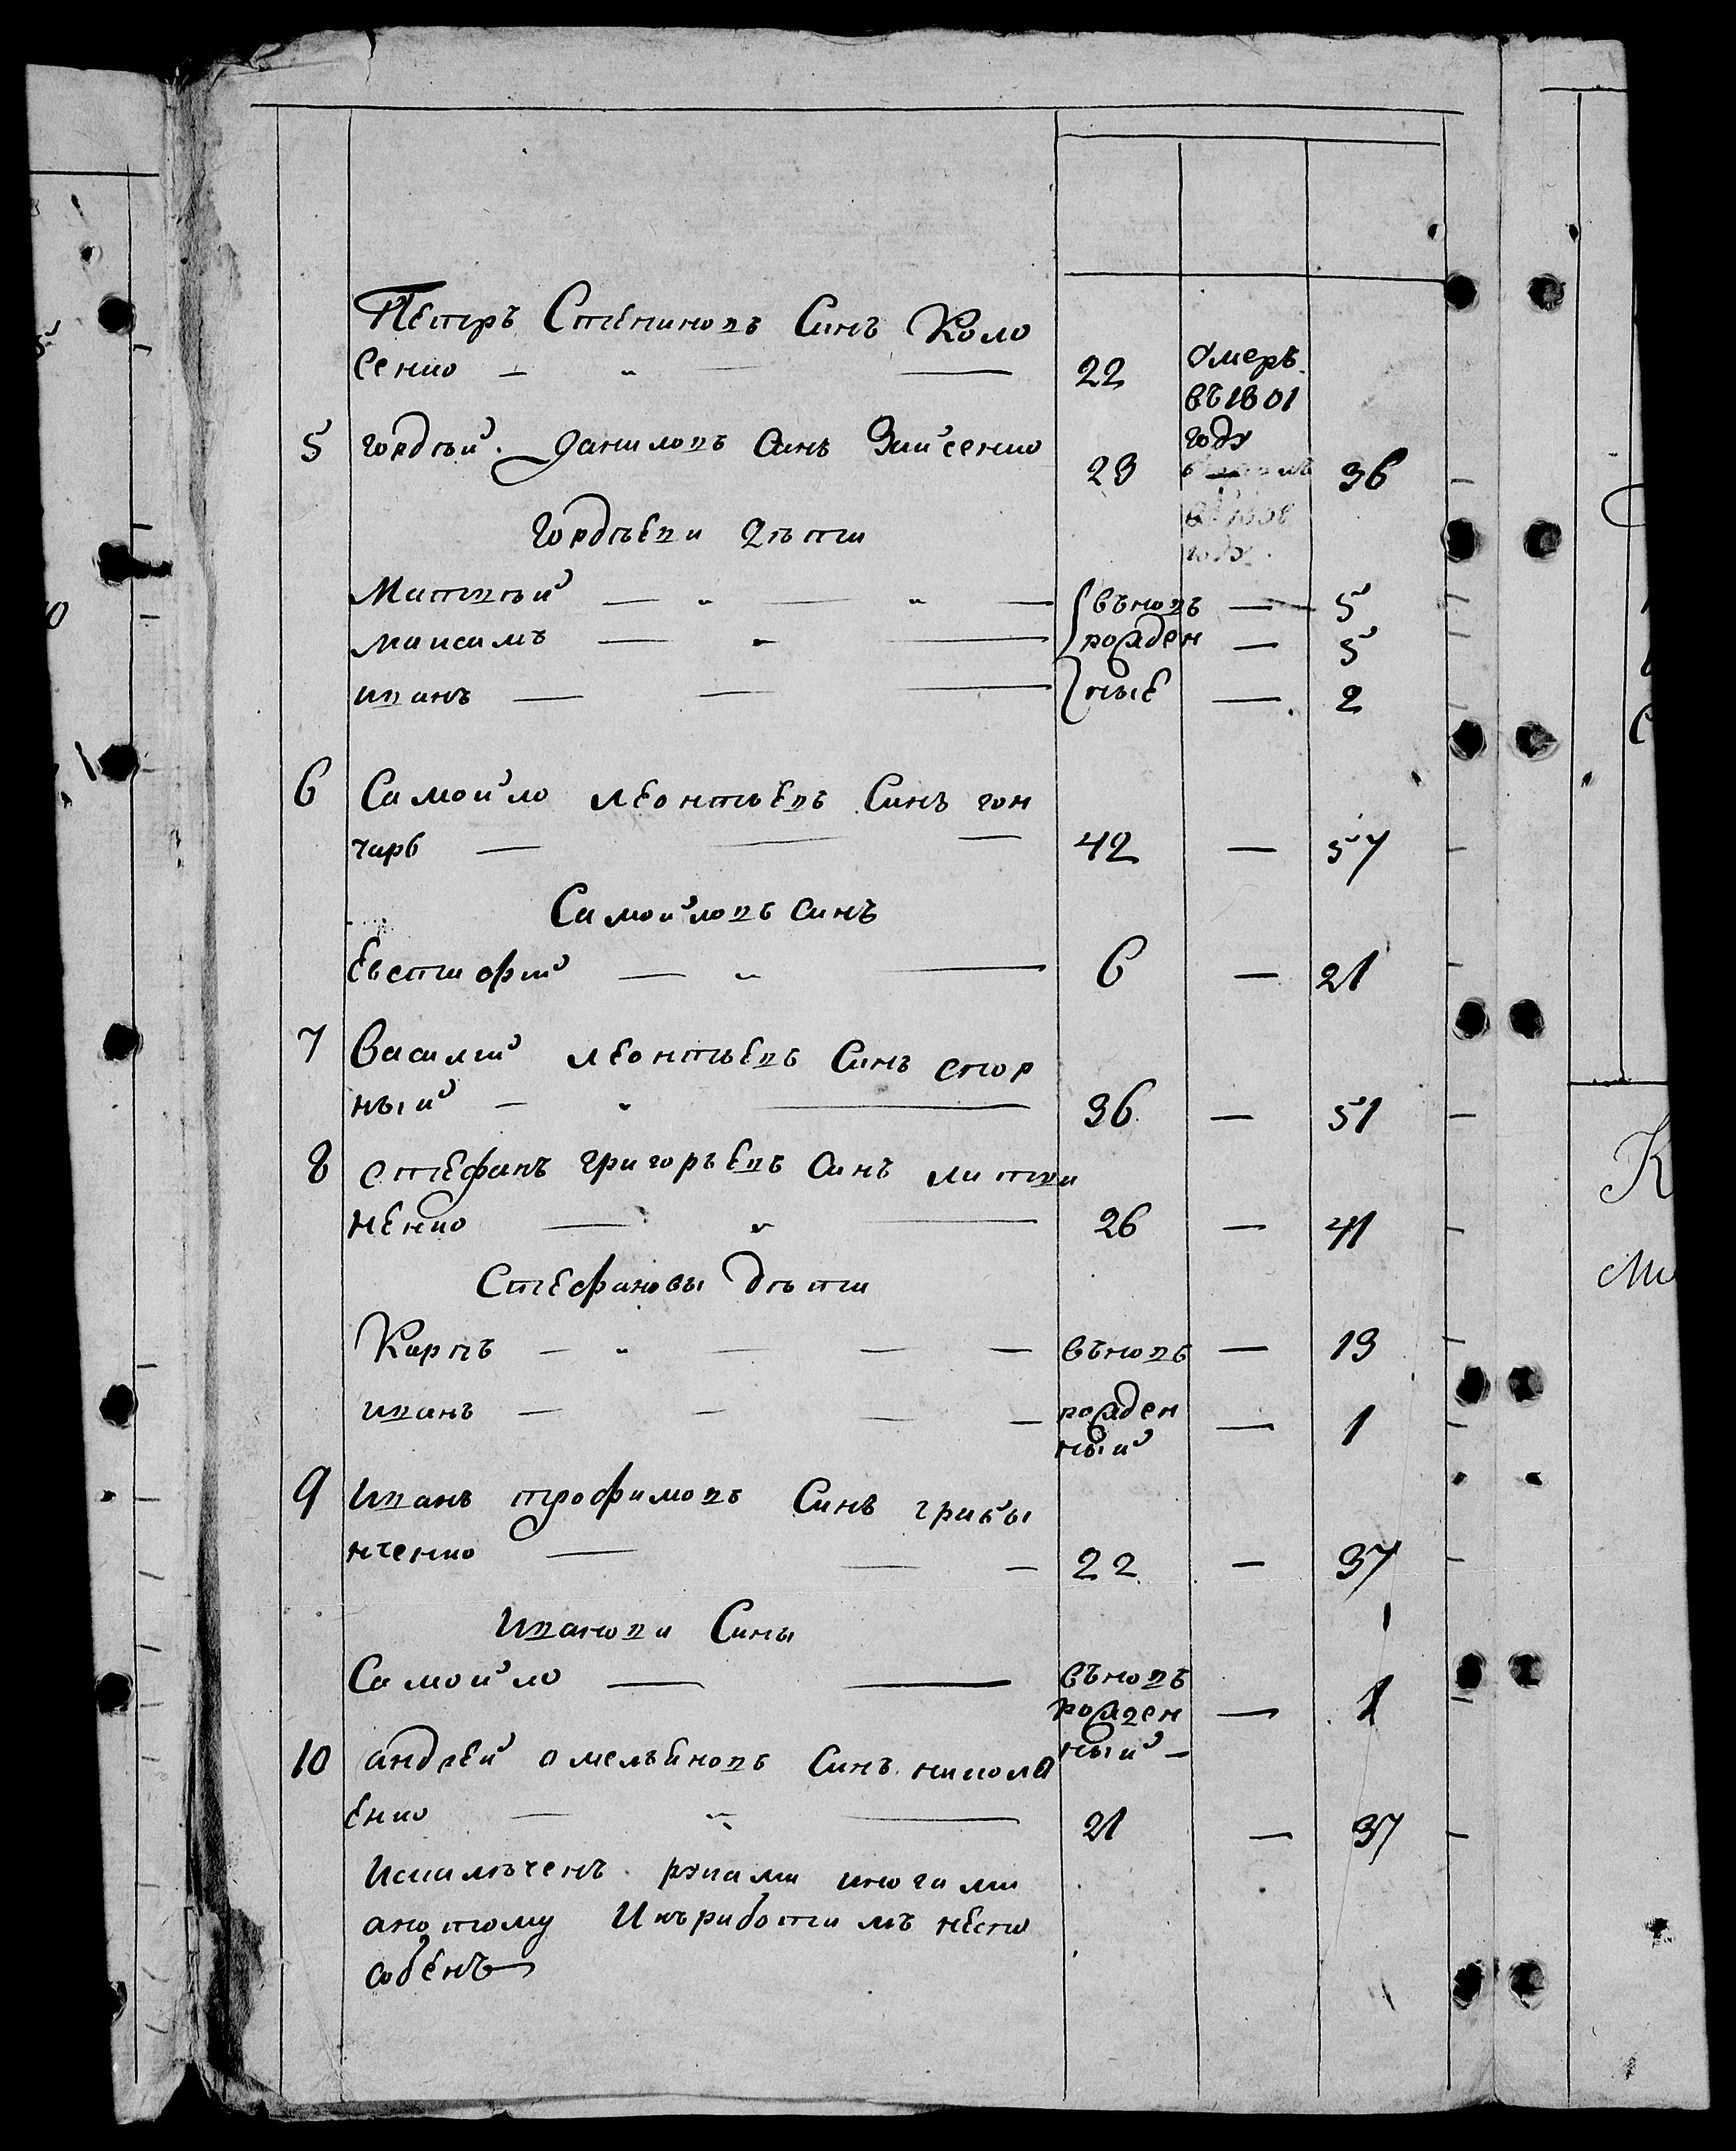 Петръ Степановъ Синъ Коло
сенко 22 Умеръ
въ 1801
году
5 гордѣй Даниловъ синъ Зайченко 23 36
Гордѣеви дѣти
Матвѣй въновь 5
максимъ рожден 5
иванъ ные 2
6 Самойло леонтьевъ Синъ гон
чаръ 42 — 57
Самойловъ синъ
Евстафий 6 — 21
7 Василий леонтьевъ Синъ спор
ный 36 — 51
8 стефанъ григорьевъ синъ литви
ненко 26 — 41
Стефановы дѣти
Карпъ въновь — 13
иванъ рожден — 1
ный
9 Иванъ трофимовъ Синъ грибы
нченко 22 — 37
Иванови Сины
Самойло въновь
рожден — 1
ный
10 андрей омельяновъ Синъ никола
енко 21 — 37
Искалѣченъ руками иногами
апотому Икъработамъ неспо
собенъ